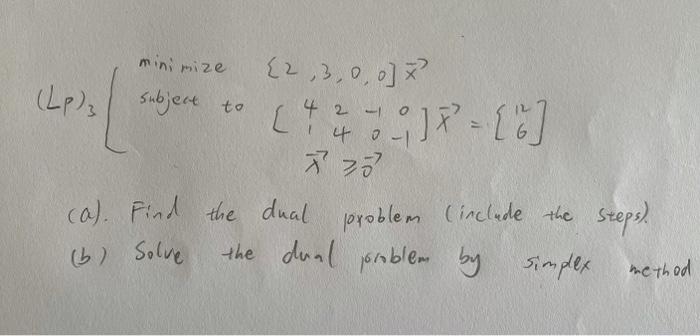 minimize [2,3,0,0] x⃗
(Lp)₃ subject to [4 2 -1 0
1 4 0 -1] x⃗ = [12
6]
x⃗ ≥ 0⃗
(a). Find the dual problem (include the steps).
(b) Solve the dual problem by simplex method